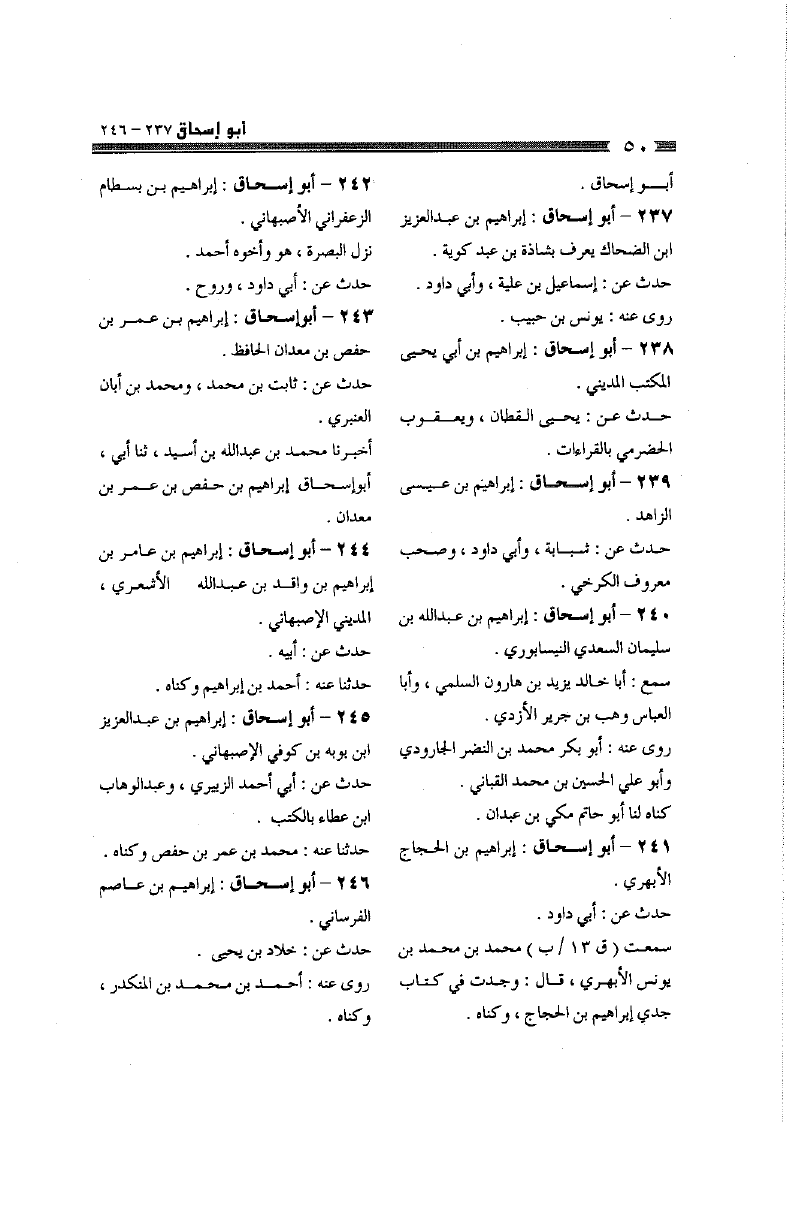 أبو إسحاق ٢٣٧ – ٢٤٦
٥٠
أبـــو إسحاق .
٢٣٧ – أبو إسحاق : إبراهيم بن عبدالعزيز
ابن الضحاك يعرف بشاذة بن عبد كوية .
حدث عن : إسماعيل بن علية ، وأبي داود .
روى عنه : يونس بن حبيب .
٢٣٨ – أبو إسحاق : إبراهيم بن أبي يحيى
المكتب المديني .
حـدث عـن : يحيـى القطان ، ويعـقـوب
الحضرمي بالقراءات .
٢٣٩ – أبو إسحاق : إبراهيم بن عيسى
الزاهد .
حدث عن : شبابة ، وأبي داود ، وصحب
معروف الكرخي .
٢٤٠ – أبو إسحاق : إبراهيم بن عبدالله بن
سليمان السعدي النيسابوري .
سمع : أبا خالد يزيد بن هارون السلمي ، وأبا
العباس وهب بن جرير الأزدي .
روى عنه : أبو بكر محمد بن النضر الجارودي
وأبو علي الحسين بن محمد القباني .
كناه لنا أبو حاتم مكي بن عبدان .
٢٤١ – أبو إسحاق : إبراهيم بن الحجاج
الأبهري .
حدث عن : أبي داود .
سمعت ( ق ١٣ / ب ) محمد بن محمد بن
يونس الأبهري ، قال : وجدت في كتاب
جدي إبراهيم بن الحجاج ، وكناه .
٢٤٢ – أبو إسحاق : إبراهيم بن بسطام
الزعفراني الأصبهاني .
نزل البصرة ، هو وأخوه أحمد .
حدث عن : أبي داود ، وروح .
٢٤٣ – أبوإسحاق : إبراهيم بن عمر بن
حفص بن معدان الحافظ .
حدث عن : ثابت بن محمد ، ومحمد بن أبان
العنبري .
أخبرنا محمد بن عبدالله بن أسيد ، ثنا أبي ،
أبوإسحاق إبراهيم بن حفص بن عمر بن
معدان .
٢٤٤ – أبو إسحاق : إبراهيم بن عامر بن
إبراهيم بن واقد بن عبدالله الأشعري ،
المديني الإصبهاني .
حدث عن : أبيه .
حدثنا عنه : أحمد بن إبراهيم وكناه .
٢٤٥ – أبو إسحاق : إبراهيم بن عبدالعزيز
ابن بويه بن كوفي الإصبهاني .
حدث عن : أبي أحمد الزبيري ، وعبدالوهاب
ابن عطاء بالكتب .
حدثنا عنه : محمد بن عمر بن حفص وكناه .
٢٤٦ – أبو إسحاق : إبراهيم بن عاصم
الفرساني .
حدث عن : خلاد بن يحيى .
روى عنه : أحمد بن محمد بن المنكدر ،
وكناه .